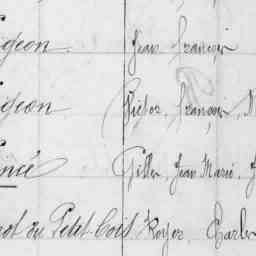 geon. Jean François
geon Victor, François, 
Gilles, Jean Marie, J
ot du Petit-Bois, Royer, Charles